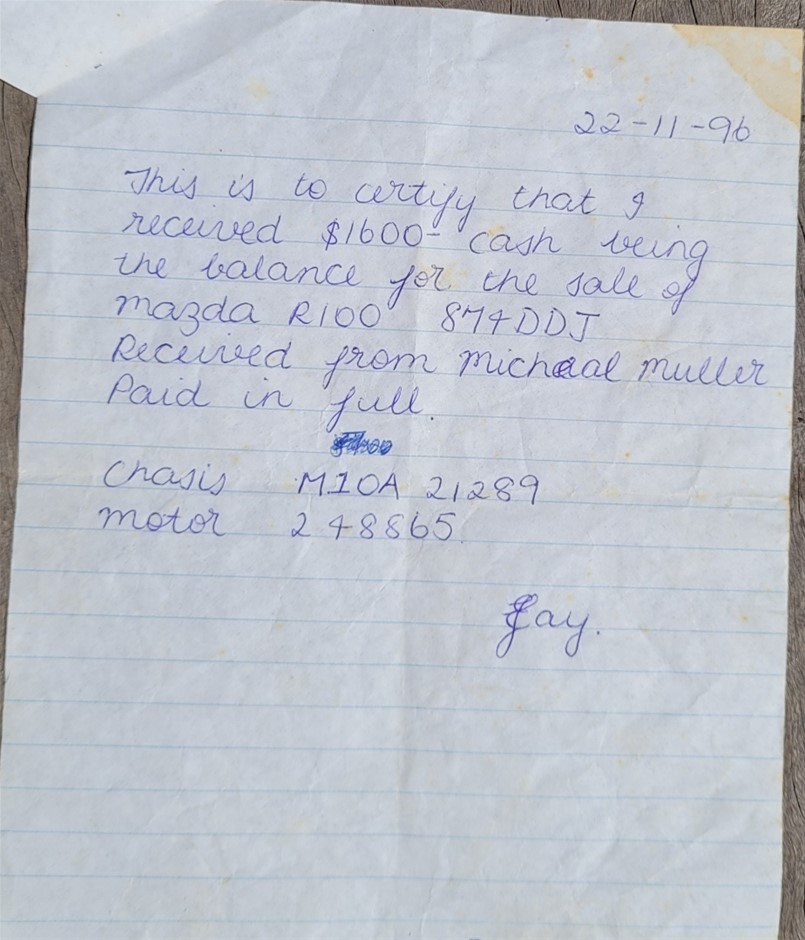 22-11-96
This is to certify that I
received $1600- cash being
the balance for the sale of
Mazda R100 874DDJ
Received from Michael Muller
Paid in full.
Chasis M10A 21289
Motor 248865
Jay.